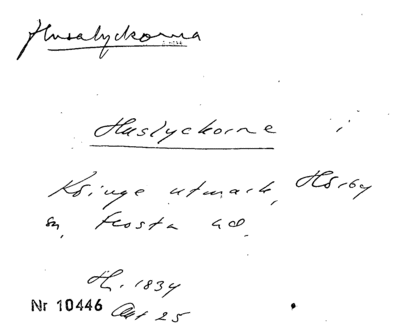 Husalyckorna
Huslyckorne i
Köinge utmark, Hörby
sn, Frosta hd.
H. 1834
Nr 10446 Akt 25